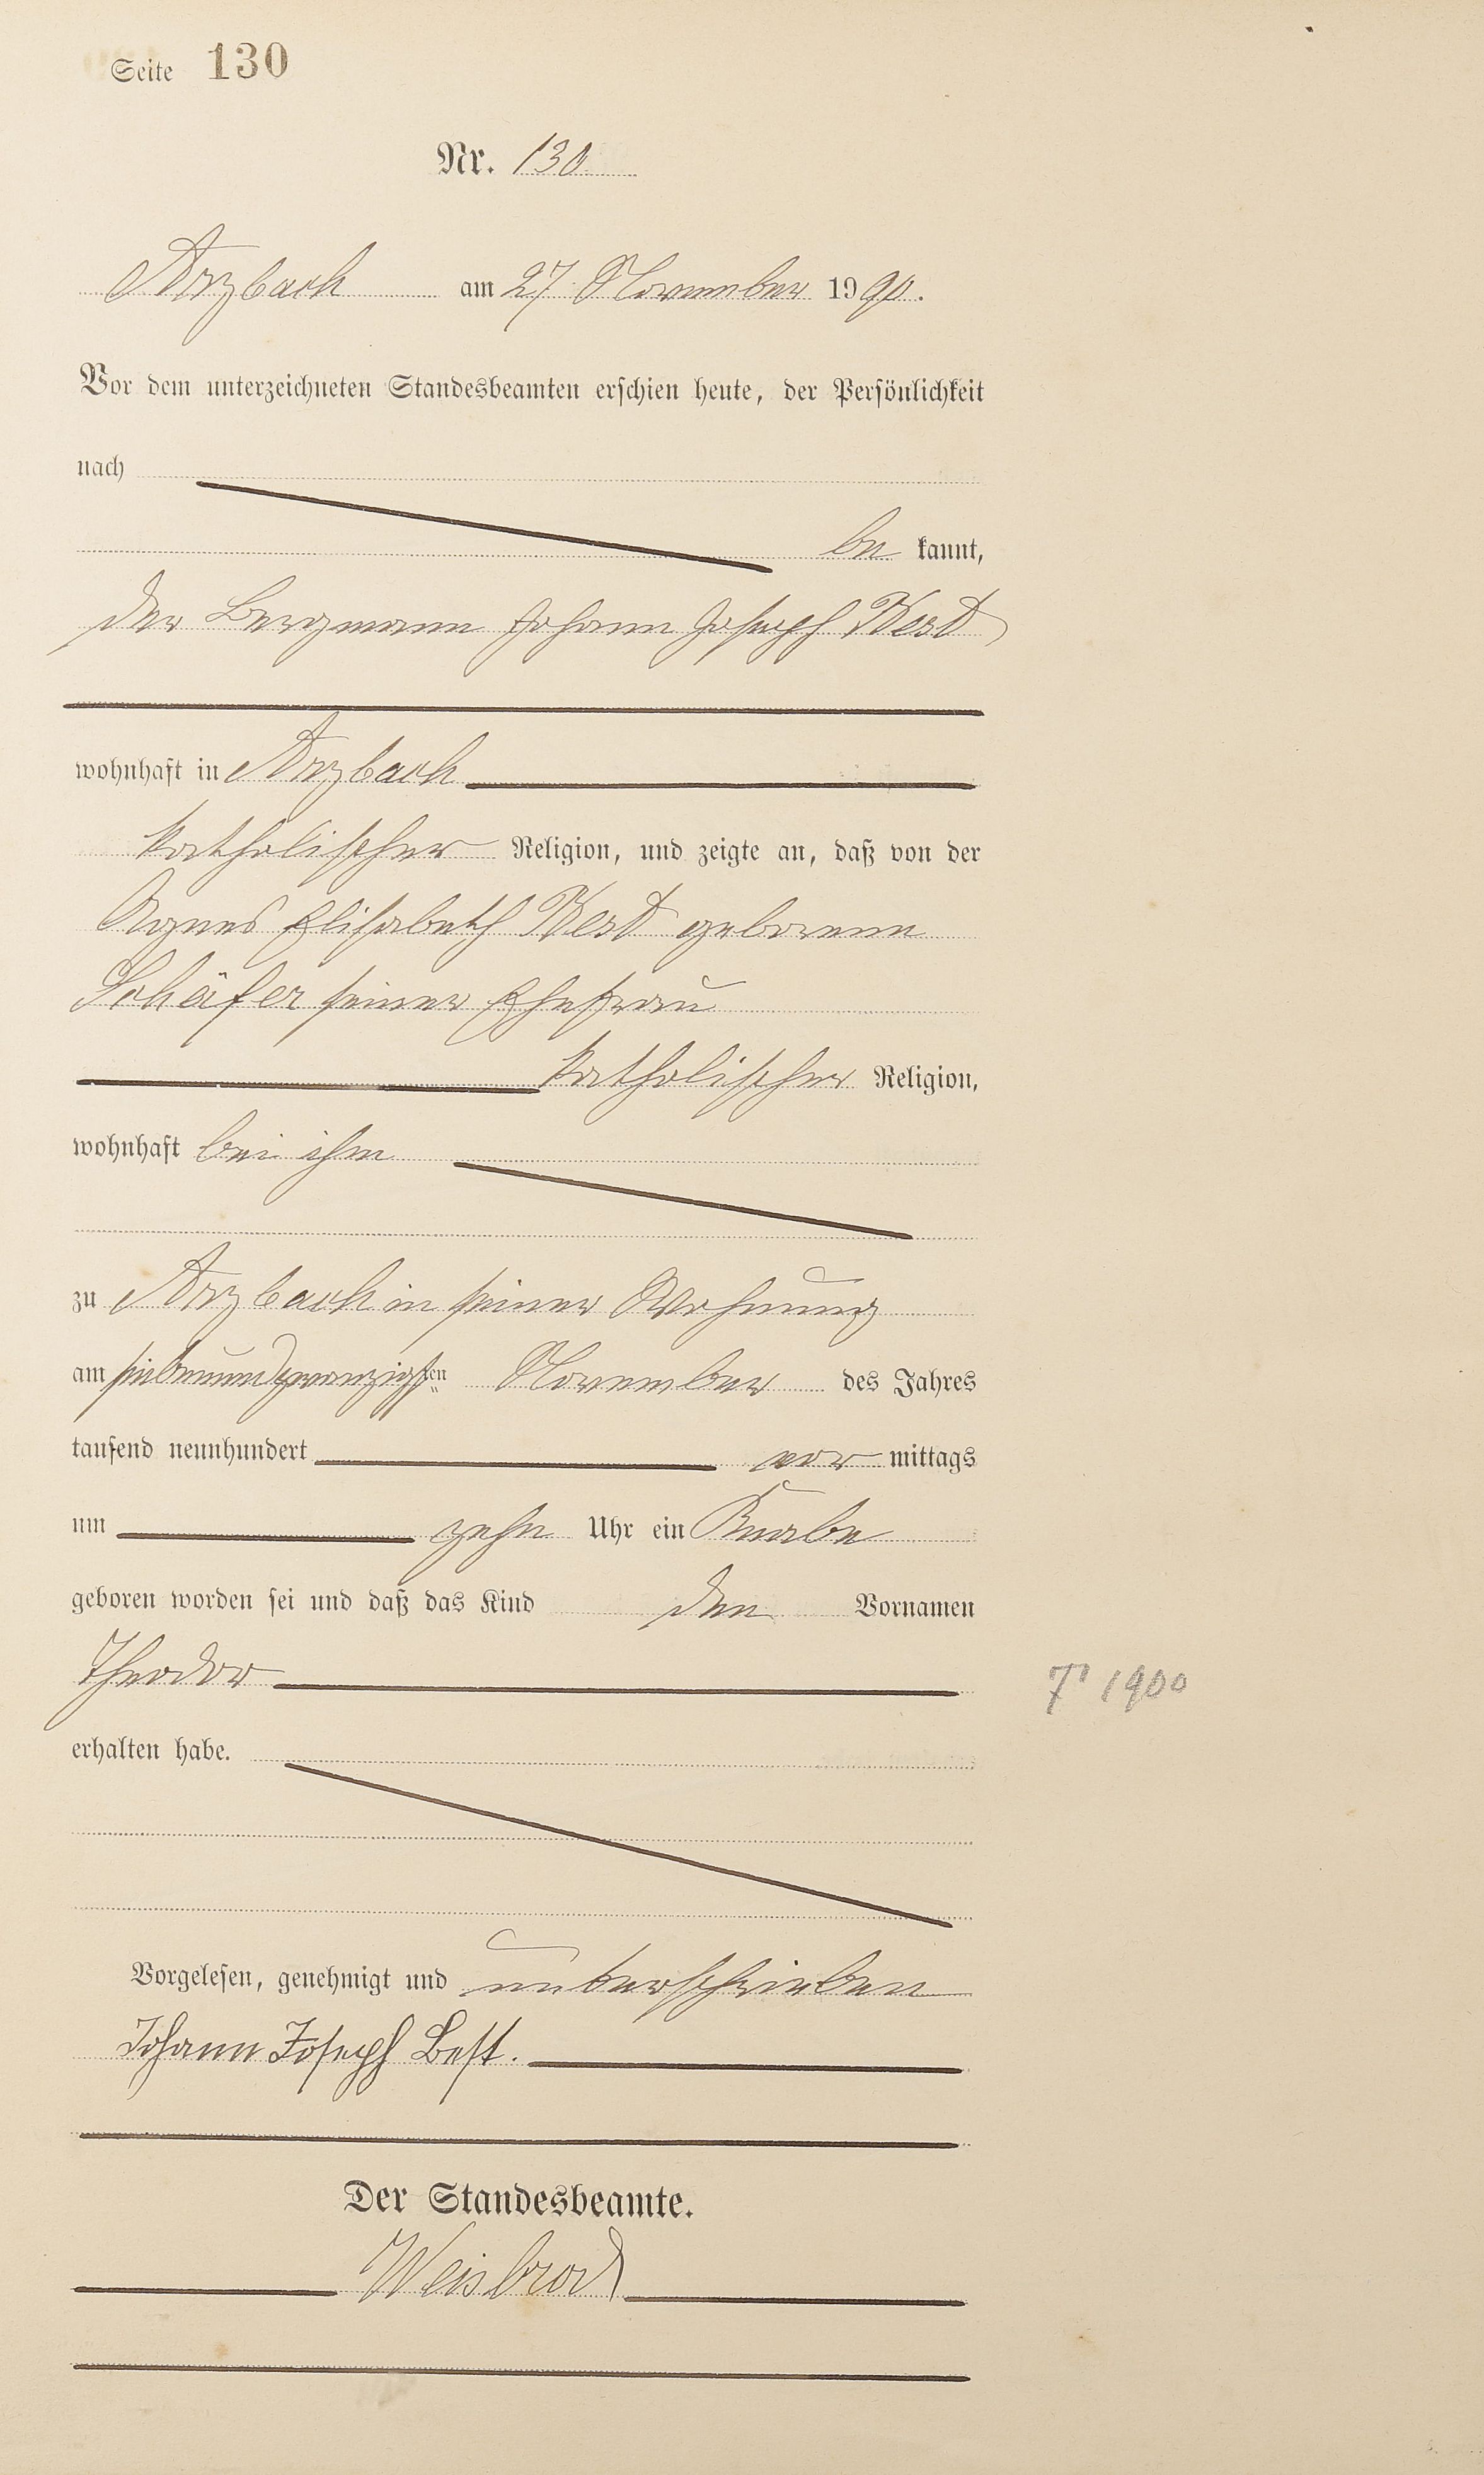 Seite 130
Nr. 130
Arzbach am 27 November 1900.
Vor dem unterzeichneten Standesbeamten erschien heute, der Persönlichkeit
nach
be kannt,
der Bergmann Johann Joseph Best
wohnhaft in Arzbach
katholischer Religion, und zeigte an, daß von der
Agnes Elisabeth Best geborene
Schäfer seiner Ehefrau
katholischer Religion,
wohnhaft bei ihm
zu Arzbach in seiner Wohnung
am siebenundzwanzigsten November des Jahres
tausend neunhundert vor mittags
um zehn Uhr ein Knabe
geboren worden sei und daß das Kind den Vornamen
Theodor
1900
erhalten habe.
Vorgelesen, genehmigt und unterschrieben
Johann Joseph Best.
Der Standesbeamte.
Weisbrod